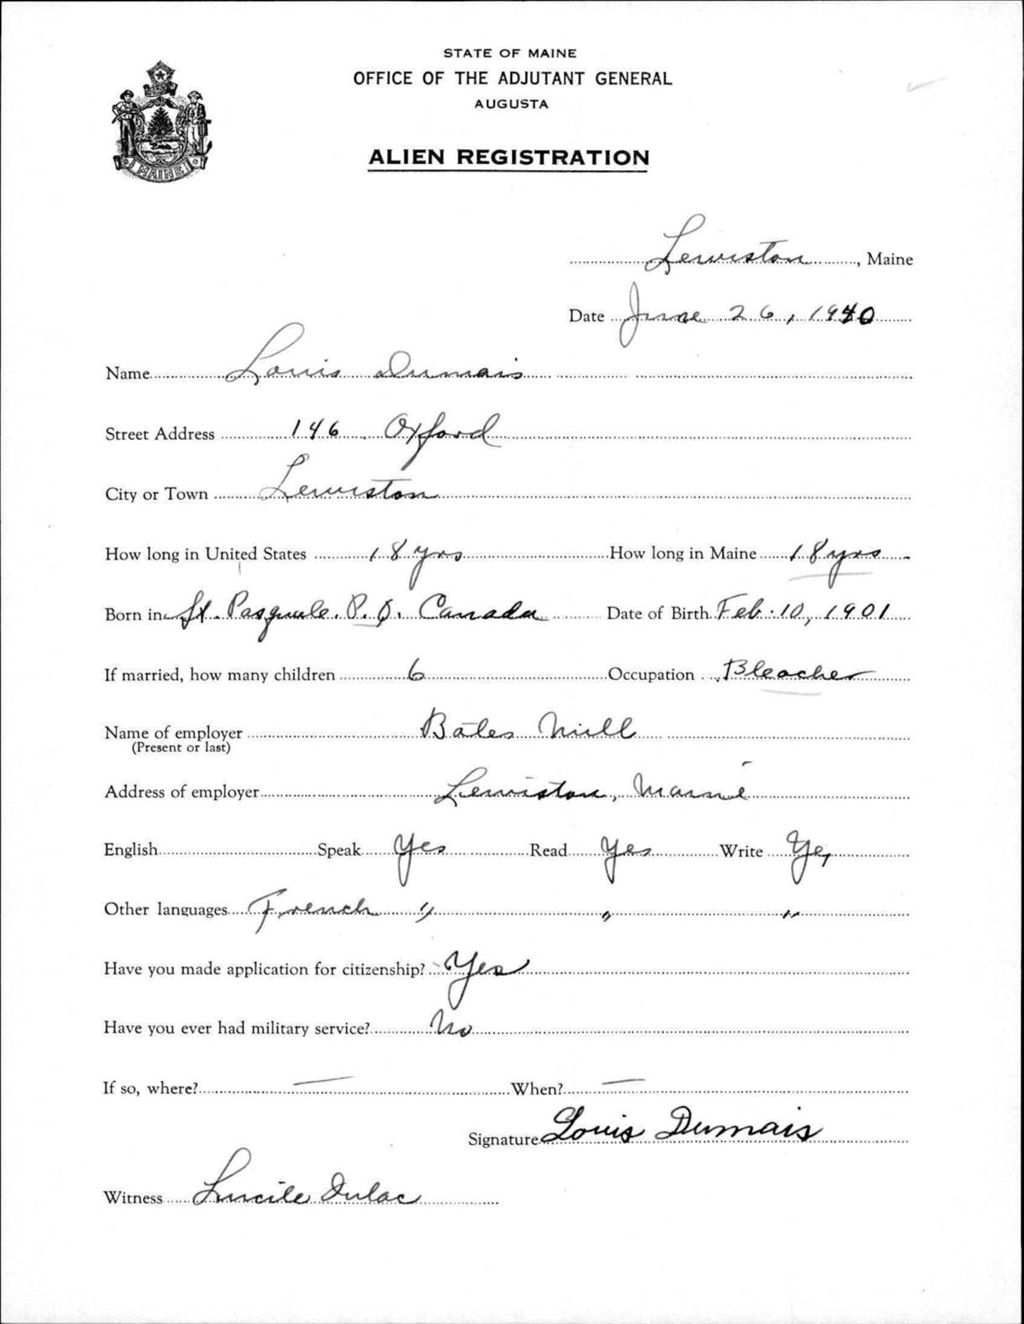 STATE OF MAINE
OFFICE OF THE ADJUTANT GENERAL
AUGUSTA
ALIEN REGISTRATION
MAINE
Lewiston, Maine
Date June 26, 1940
Name Louis Dumais
Street Address 146 Oxford
City or Town Lewiston
How long in United States 18 yrs How long in Maine 18 yrs
Born in St. Pasquale. P.Q. Canada Date of Birth Feb. 10, 1901
If married, how many children 6 Occupation Bleacher
Name of employer Bates Mill
(Present or last)
Address of employer Lewiston, Maine
English Speak Yes Read Yes Write Yes
Other languages French " " "
Have you made application for citizenship? Yes
Have you ever had military service? No
If so, where? — When? —
Signature Louis Dumais
Witness Lucile Dulac